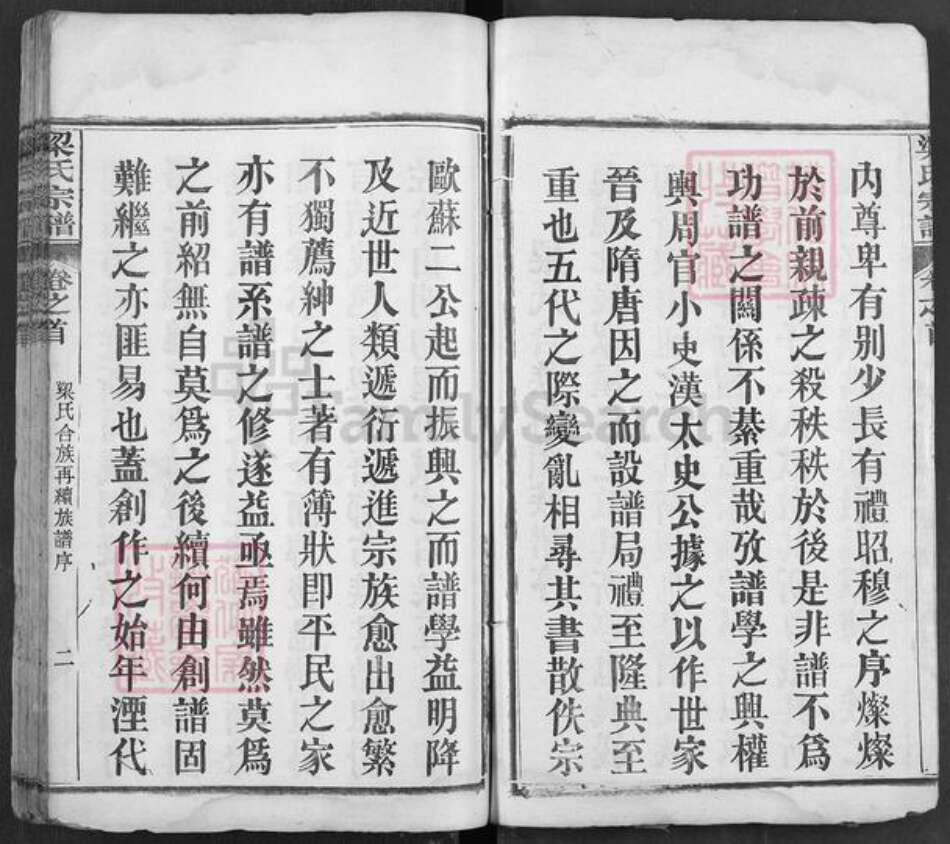 內尊卑有別少長有禮昭穆之序燦燦
於前親疎之殺秩秩於後是非譜不爲
功譜之關係不綦重哉攷譜學之興權
輿周官小史漢太史公據之以作世家
晉及隋唐因之而設譜局禮至隆典至
重也五代之際變亂相尋其書散佚宗
歐蘇二公起而振興之而譜學益明降
及近世人類遞衍遞進宗族愈出愈繁
不獨薦紳之士著有薄狀即平民之家
亦有譜系譜之修遂益亟焉雖然莫爲
之前紹無自莫爲之後續何由創譜固
難繼之亦匪易也蓋創作之始年湮代
梁氏宗譜
卷之首
梁氏合族再續族譜序
二
FamilySearch